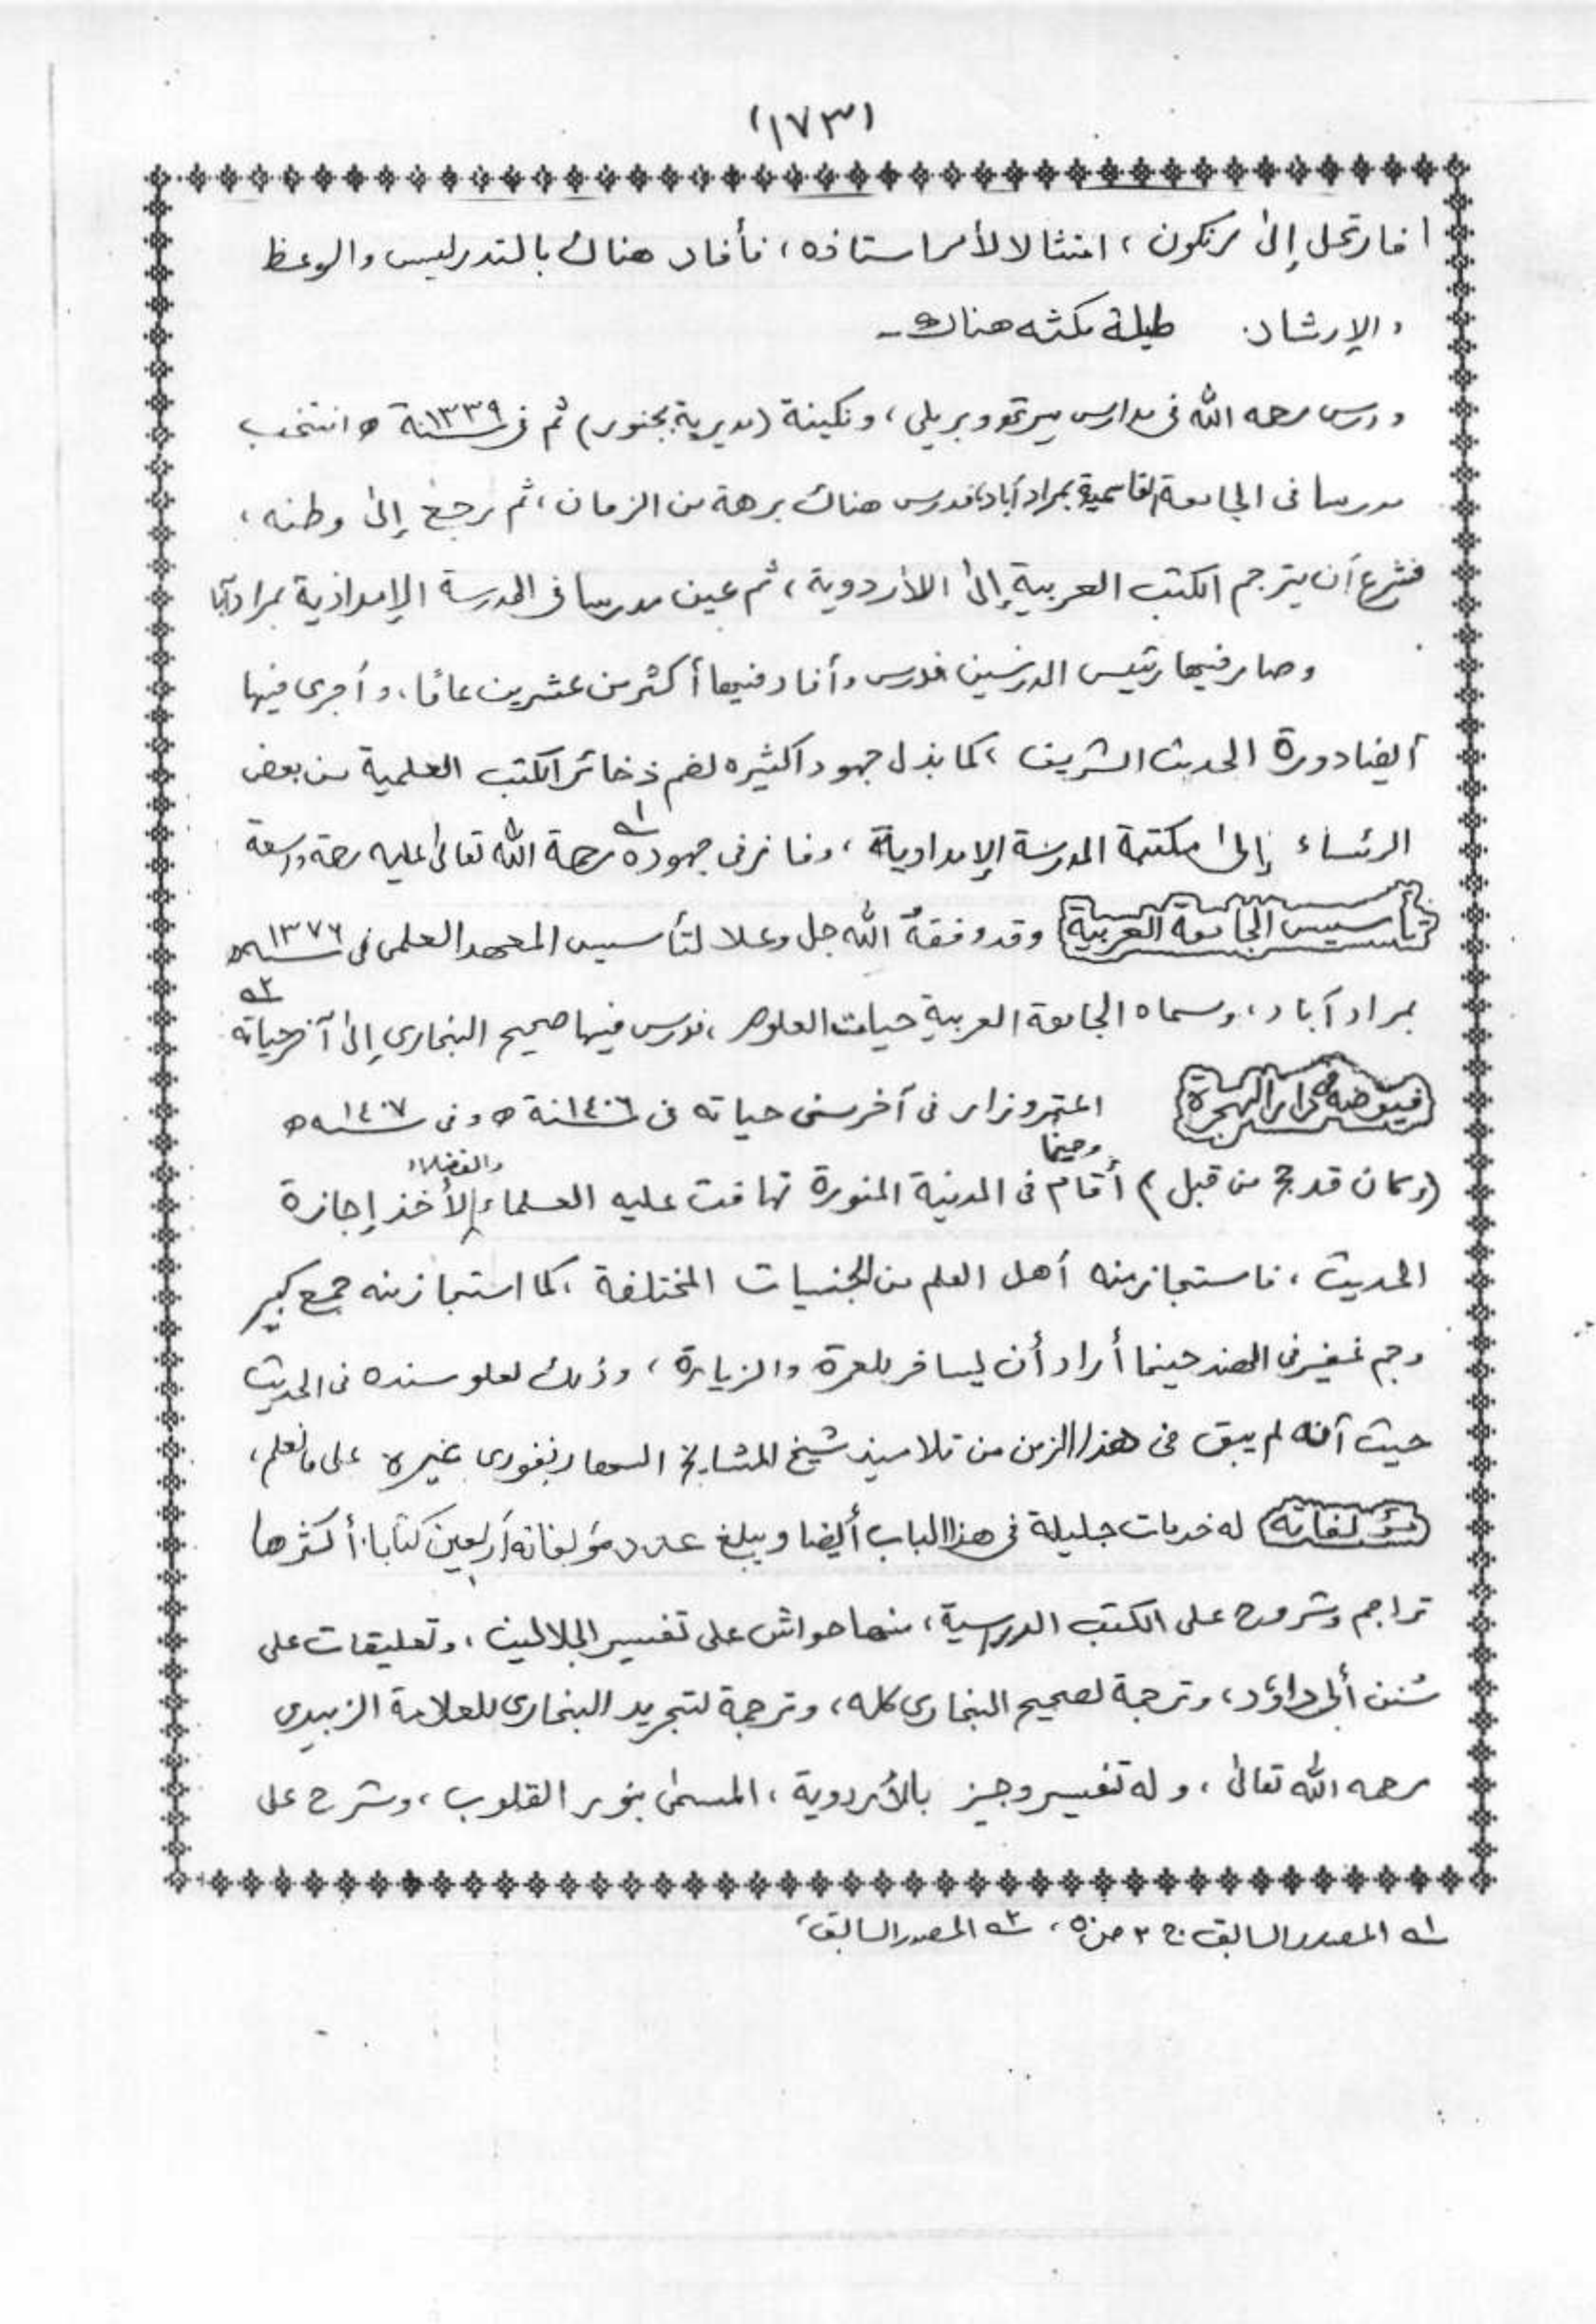 (١٧٣)
فارتحل إلى رنكون، امتثالا لأمر استاذه، فأفاد هناك بالتدريس والوعظ
والإرشاد طيلة مكثه هناك۔
ودرس رحمه الله فى مدارس ميرتهو وبريلى، ونكينة (مديرية بجنور) ثم فى سنة ١٣٣٩ھ انتخب
مدرسا فى الجامعة القاسمية بمرادآباد، فدرس هناك برهة من الزمان، ثم رجع إلى وطنه،
فشرع أن يترجم الكتب العربية إلى الأردوية، ثم عين مدرسا فى المدرسة الإمدادية بمرادآبا
وصار فيها رئيس المدرسين فدرس وأفاد فيها أكثر من عشرين عامًا، وأجرى فيها
أيضا دورة الحديث الشريف، كما بذل جهودا كثيره لضم ذخائر الكتب العلمية من بعض
الرئساء إلى مكتبة المدرسة الإمدادية، وفاز فى جهوده ؎١ رحمة الله تعالى عليه رحمة واسعة
تأسيس الجامعة العربية وقد وفقه الله جل وعلا لتأسيس المعهد العلمى فى سنه ١٣٧٦ھ
بمرادآباد، وسماه الجامعة العربية حيات العلوم، فدرس فيها صحيح البخارى إلى آخر حياته ؎٢
فيوضه فى دار الهجرة اعتمر وزار فى آخر سنى حياته فى سنة ١٤٠٦ھ وفى سنه ١٤٠٧ھ
(وكان قد حج من قبل) وحينما أقام فى المدينة المنورة تهافت عليه العلماء والفضلاء لأخذ إجازة
الحديث، فاستجاز منه أهل العلم من الجنسيات المختلفة، كما استجاز منه جمع كبير
وجم غفير فى الهند حينما أراد أن يسافر للعمرة والزيارة، وذلك لعلو سنده فى الحديث
حيث أنه لم يبق فى هذا الزمن من تلاميذ شيخ المشايخ السهارنفورى غيره على ما نعلم،
مؤلفاته له خدمات جليلة فى هذا الباب أيضا ويبلغ عدد مؤلفاته أربعين كتابا. أكثرها
تراجم وشروح على الكتب الدرسية، منها حواش على تفسير الجلالين، وتعليقات على
سُنن أبى داؤد، وترجمة لصحيح البخارى كله، وترجمة لتجريد البخارى للعلامة الزبيدى
رحمه الله تعالى، وله تفسير وجيز بالأردوية، المسمى بنور القلوب، وشرح على
؎١ المصدر السابق ج ٢ ص ٥٠، ؎٢ المصدر السابق،